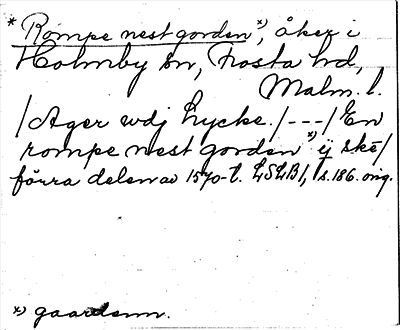 * Rompe nest gorden *), åker i
Holmby sn, Frosta hd,
Malm. l.
/ Ager wdj Lycke. / --- / En
rompe nest gorden *) ij skē /
förra delen av 1570-t. LSLB 1, s. 186. orig.
*) gaardenn.